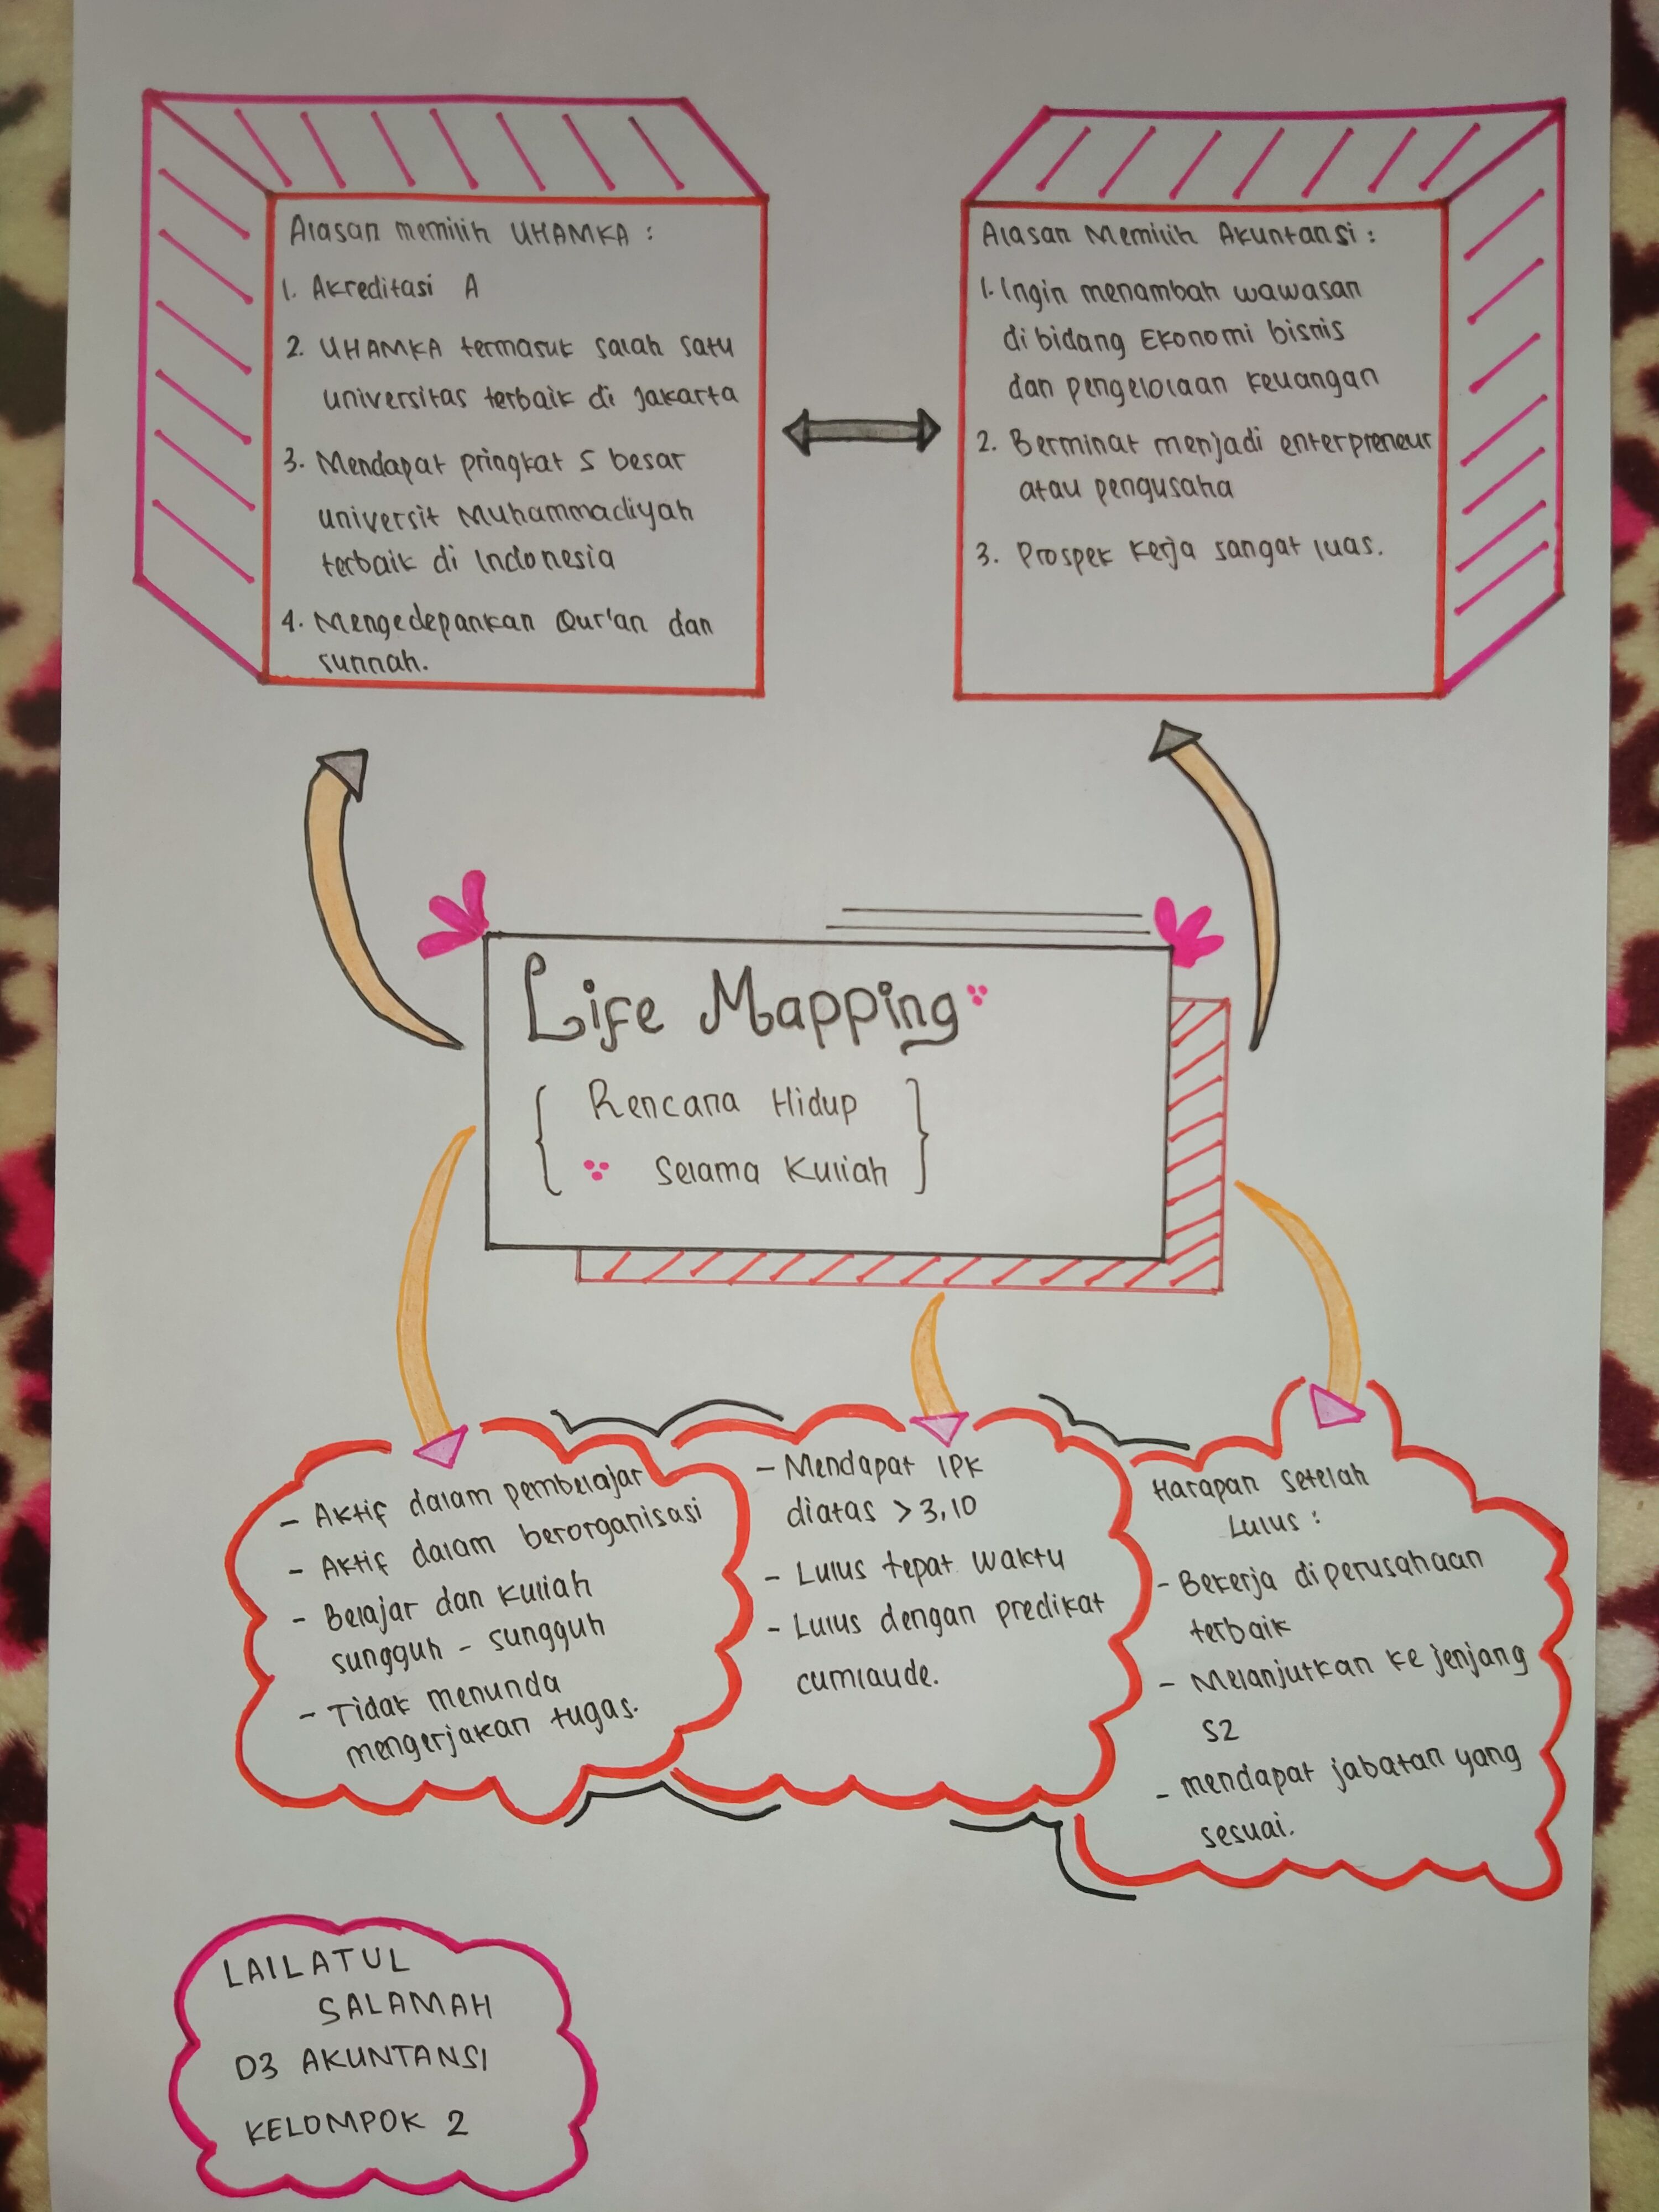 Alasan memilih UHAMKA :
1. Akreditasi A
2. UHAMKA termasuk salah satu
universitas terbaik di Jakarta
3. Mendapat pringkat 5 besar
universit Muhammadiyah
terbaik di Indonesia
4. Mengedepankan Qur'an dan
sunnah.
Alasan Memilih Akuntansi :
1. Ingin menambah wawasan
di bidang Ekonomi bisnis
dan pengelolaan keuangan
2. Berminat menjadi enterpreneur
atau pengusaha
3. Prospek kerja sangat luas.
Life Mapping
{ Rencana Hidup }
Selama Kuliah
- Aktif dalam pembelajar
- Aktif dalam berorganisasi
- Belajar dan kuliah
sungguh - sungguh
- Tidak menunda
mengerjakan tugas.
- Mendapat IPK
diatas > 3,10
- Lulus tepat waktu
- Lulus dengan predikat
cumlaude.
Harapan setelah
Lulus :
- Bekerja diperusahaan
terbaik
- Melanjutkan ke jenjang
S2
- mendapat jabatan yang
sesuai.
LAILATUL
SALAMAH
D3 AKUNTANSI
KELOMPOK 2